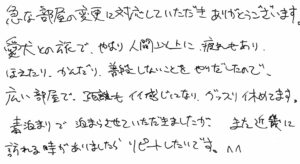 急な部屋の変更に対応していただきありがとうございます。
愛犬との旅で、やはり人間以上に疲れもあり、
ほえたり、かんだり、普段しないことをやりだしたので、
広い部屋で、距離もイイ感じになり、グッスリ休めてます。
素泊まりで泊まらさせていただきましたが、また近畿に
訪れる時がありましたらリピートしたいです。^^